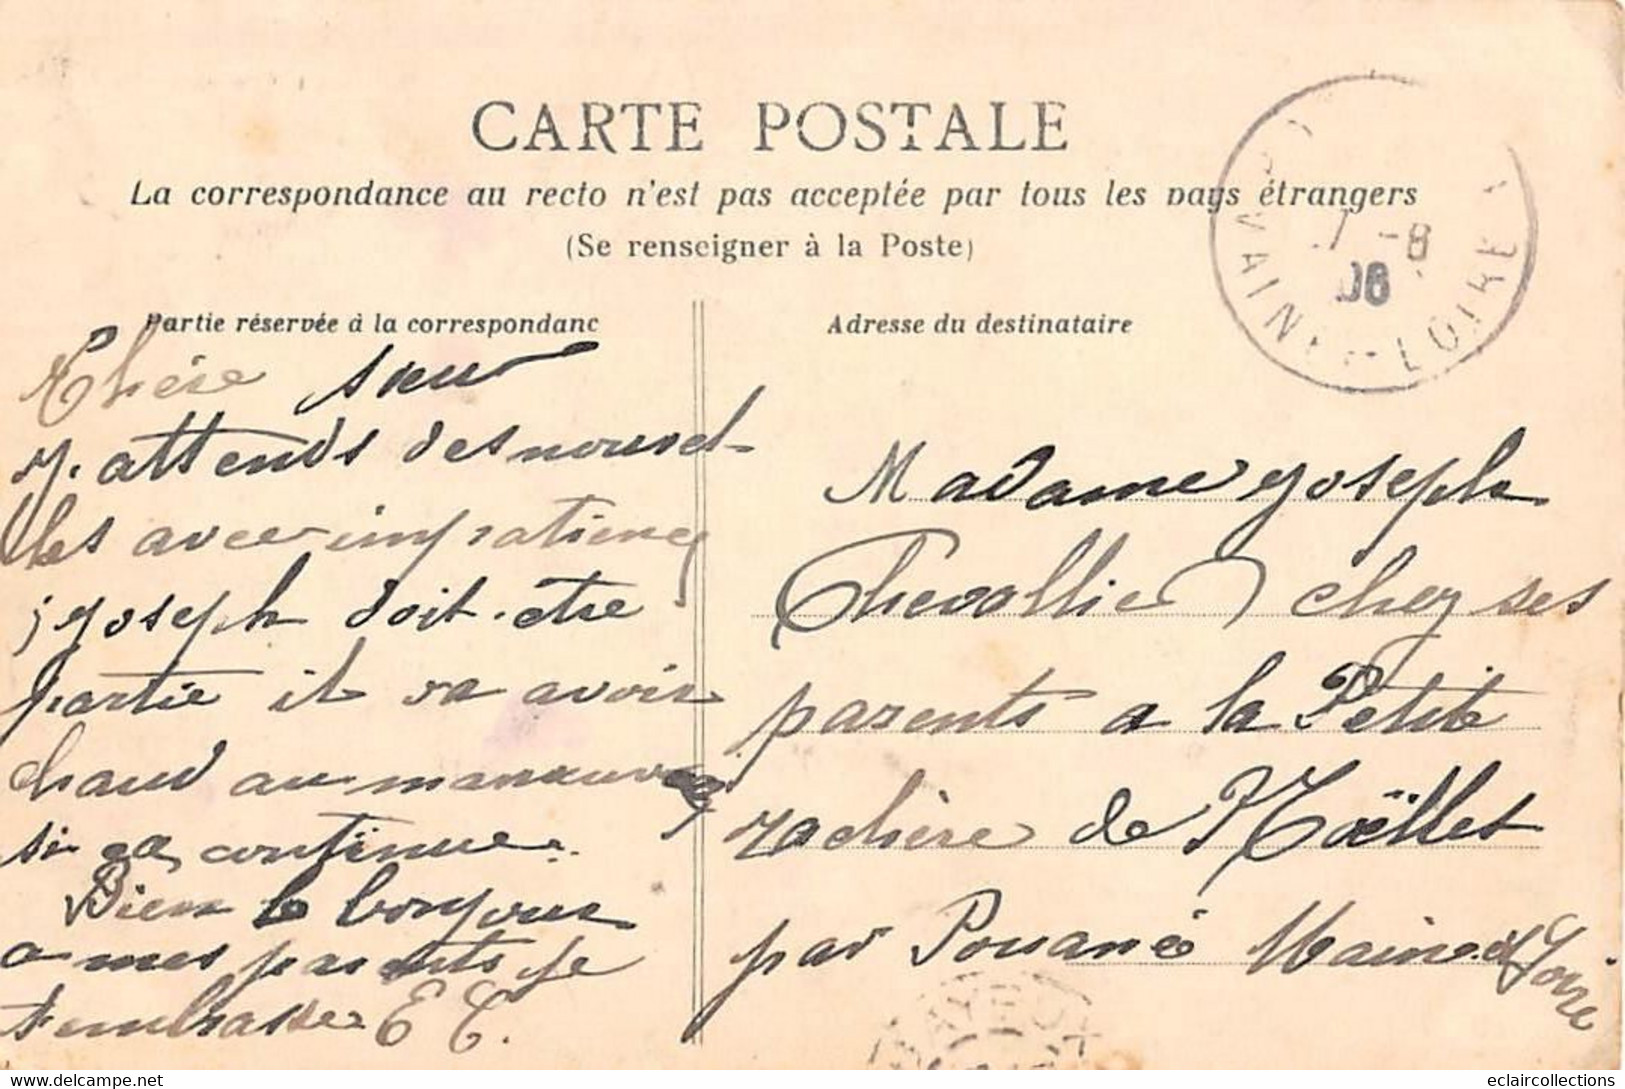 CARTE POSTALE
La correspondance au recto n'est pas acceptée par tous les pays étrangers
(Se renseigner à la Poste)
Partie réservée à la correspondanc
Adresse du destinataire
7 -8
06
MAINE-ET-LOIRE
Chére sœur
j. attends des nouvel-
les avec impatience
joseph doit. etre
partie il va avoir
chaud au manœuvres
si ça continue.
Bien le bonjour
a mes parents je
t'embrasse E C.
Madame joseph
Chevallier chez ses
parents a la Petite
rachère de Noëllet
par Pouancé Maine et Loire
www.delcampe.net
eclaircollections